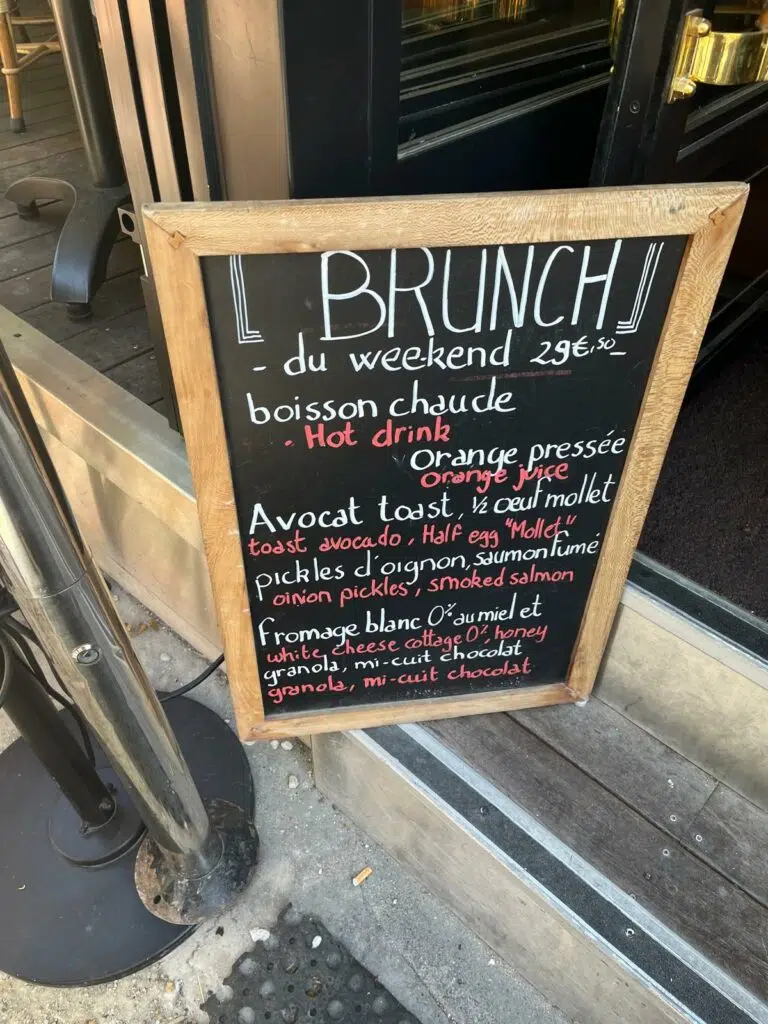 BRUNCH
- du weekend 29€,50 -
boisson chaude
- Hot drink
Orange pressée
orange juice
Avocat toast, ½ œuf mollet
toast avocado, Half egg "Mollet"
pickles d'oignon, saumon fumé
oinion pickles, smoked salmon
fromage blanc 0% au miel et
white cheese cottage 0%, honey
granola, mi-cuit chocolat
granola, mi-cuit chocolat